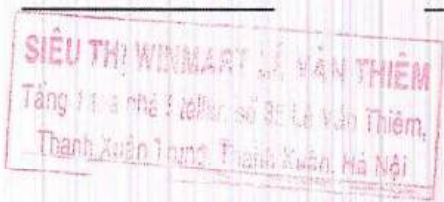 SIÊU THỊ WINMART LÊ VĂN THIÊM
Tầng 1 toà nhà Stellar, số 35 Lê Văn Thiêm,
Thanh Xuân Trung, Thanh Xuân, Hà Nội